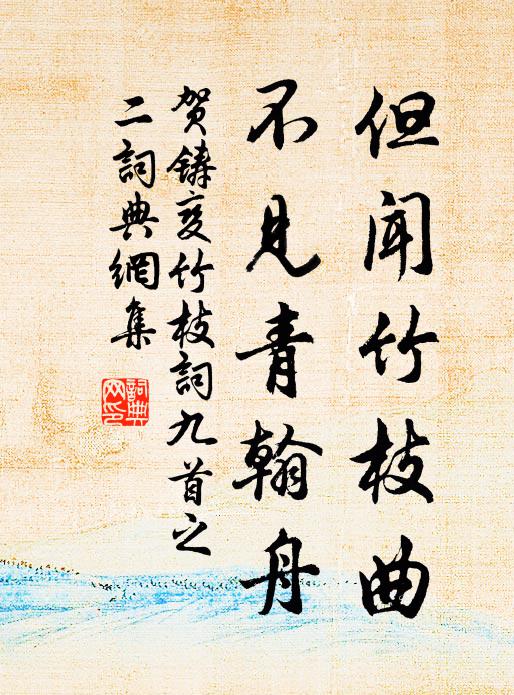 但闻竹枝曲
不见青翰舟
贺铸变竹枝词九首之
二詞典網集
詞典
网印